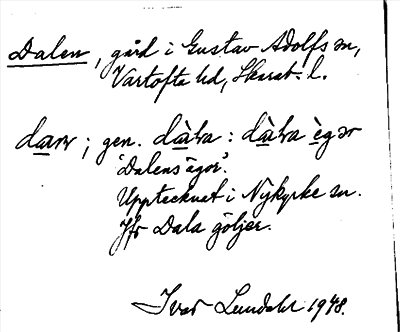 Dalen, gård i Gustav Adolfs sn,
Vartofta hd, Skarab. l.
gen. dàla : dàla ègər
'Dalens ägor'.
Upptecknat i Nykyrke sn.
Jfr Dala göljer.
Ivar Lundahl 1948.